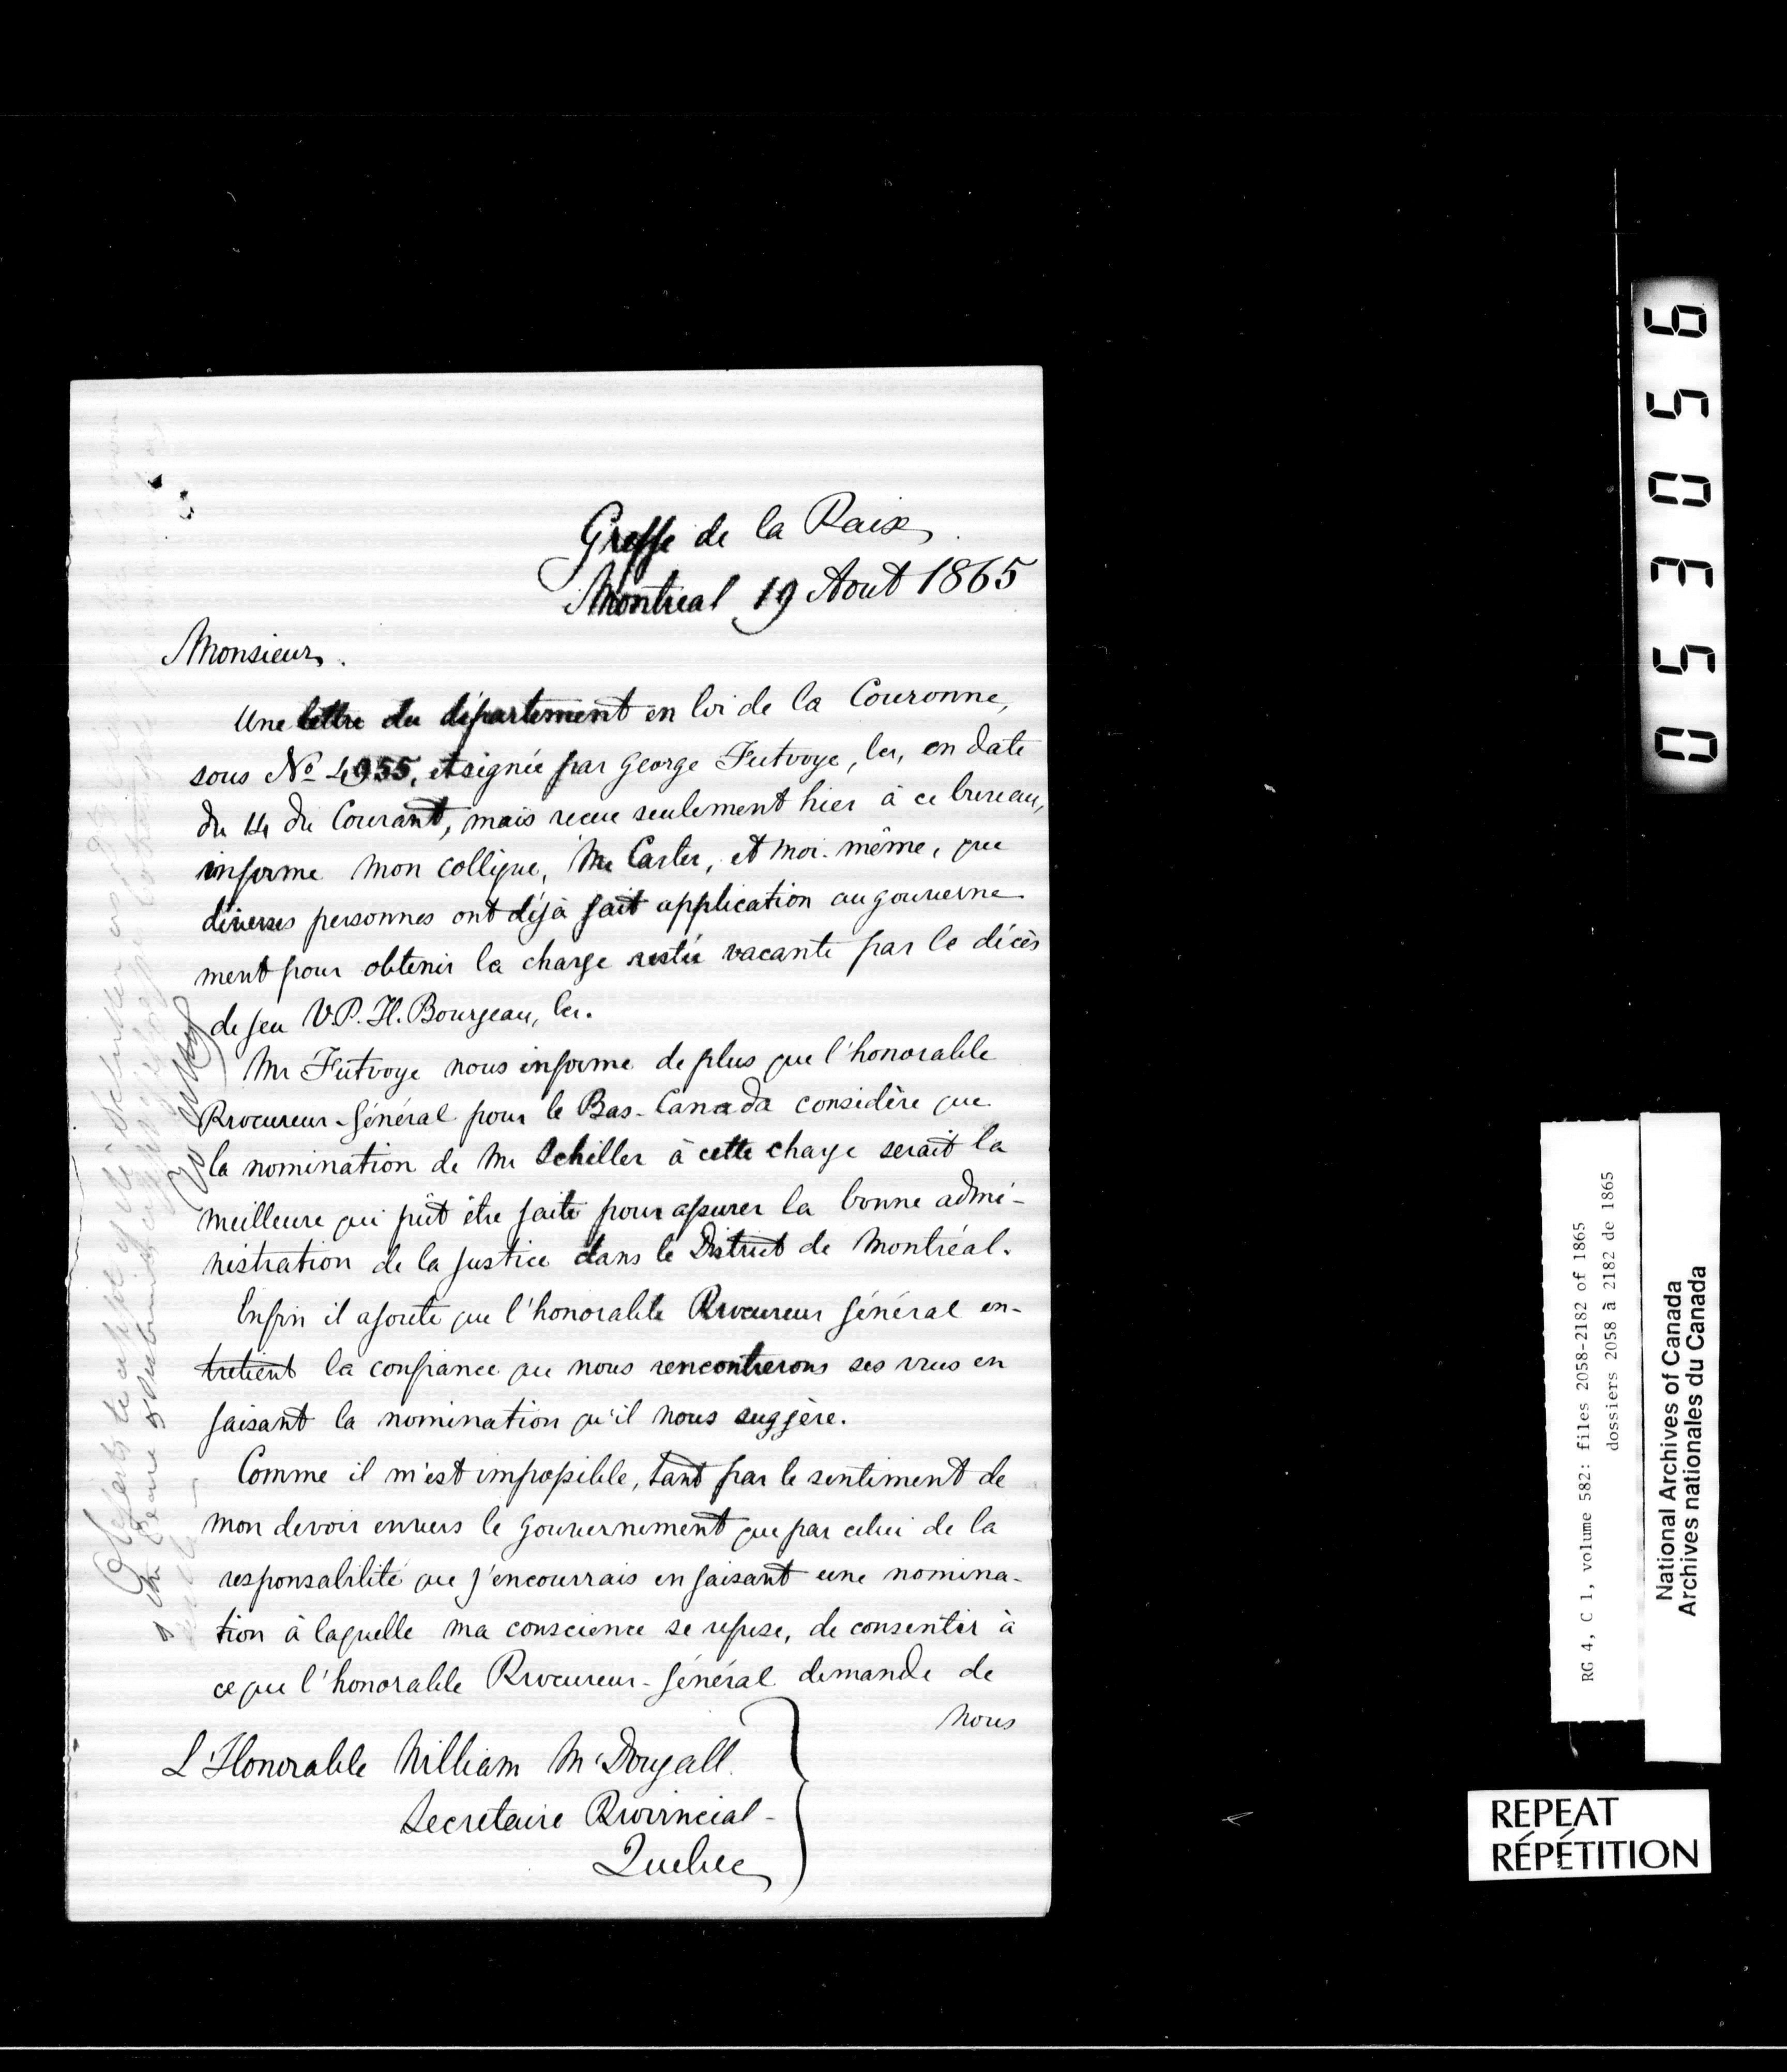 Greffe de la Paix
Montreal 19 Aout 1865
Monsieur.
Une lettre du département en loi de la Couronne,
sous No 4955, et signée par George Futvoye, Cer, en date
du 14 du Courant, mais recue seulement hier à ce bureau,
informe mon collègue, Mr Carter, et moi-même, que
diverses personnes ont déjà fait application au gouverne
ment pour obtenir la charge restée vacante par le décès
de feu V.P.H. Bourgeau, Cer.
Mr Futvoye nous informe de plus que l'honorable
Procureur-Général pour le Bas-Canada considère que
la nomination de Mr Schiller à cette charge serait la
meilleure qui pût être faite pour assurer la bonne admi-
nistration de la justice dans le District de Montréal.
Enfin il ajoute que l'honorable Procureur Général en-
tretient la confiance que nous rencontrerons ses vues en
faisant la nomination qu'il nous suggère.
Comme il m'est impossible, tant par le sentiment de
mon devoir envers le gouvernement que par celui de la
responsabilité que j'encourrais en faisant une nomina-
tion à laquelle ma conscience se refuse, de consentir à
ce que l'honorable Procureur-Général demande de
nous
L'Honorable William McDougall.
Secretaire Provincial-
Quebec
053056
RG 4, C 1, volume 582: files 2058-2182 of 1865
dossiers 2058 à 2182 de 1865
National Archives of Canada
Archives nationales du Canada
REPEAT
RÉPÉTITION